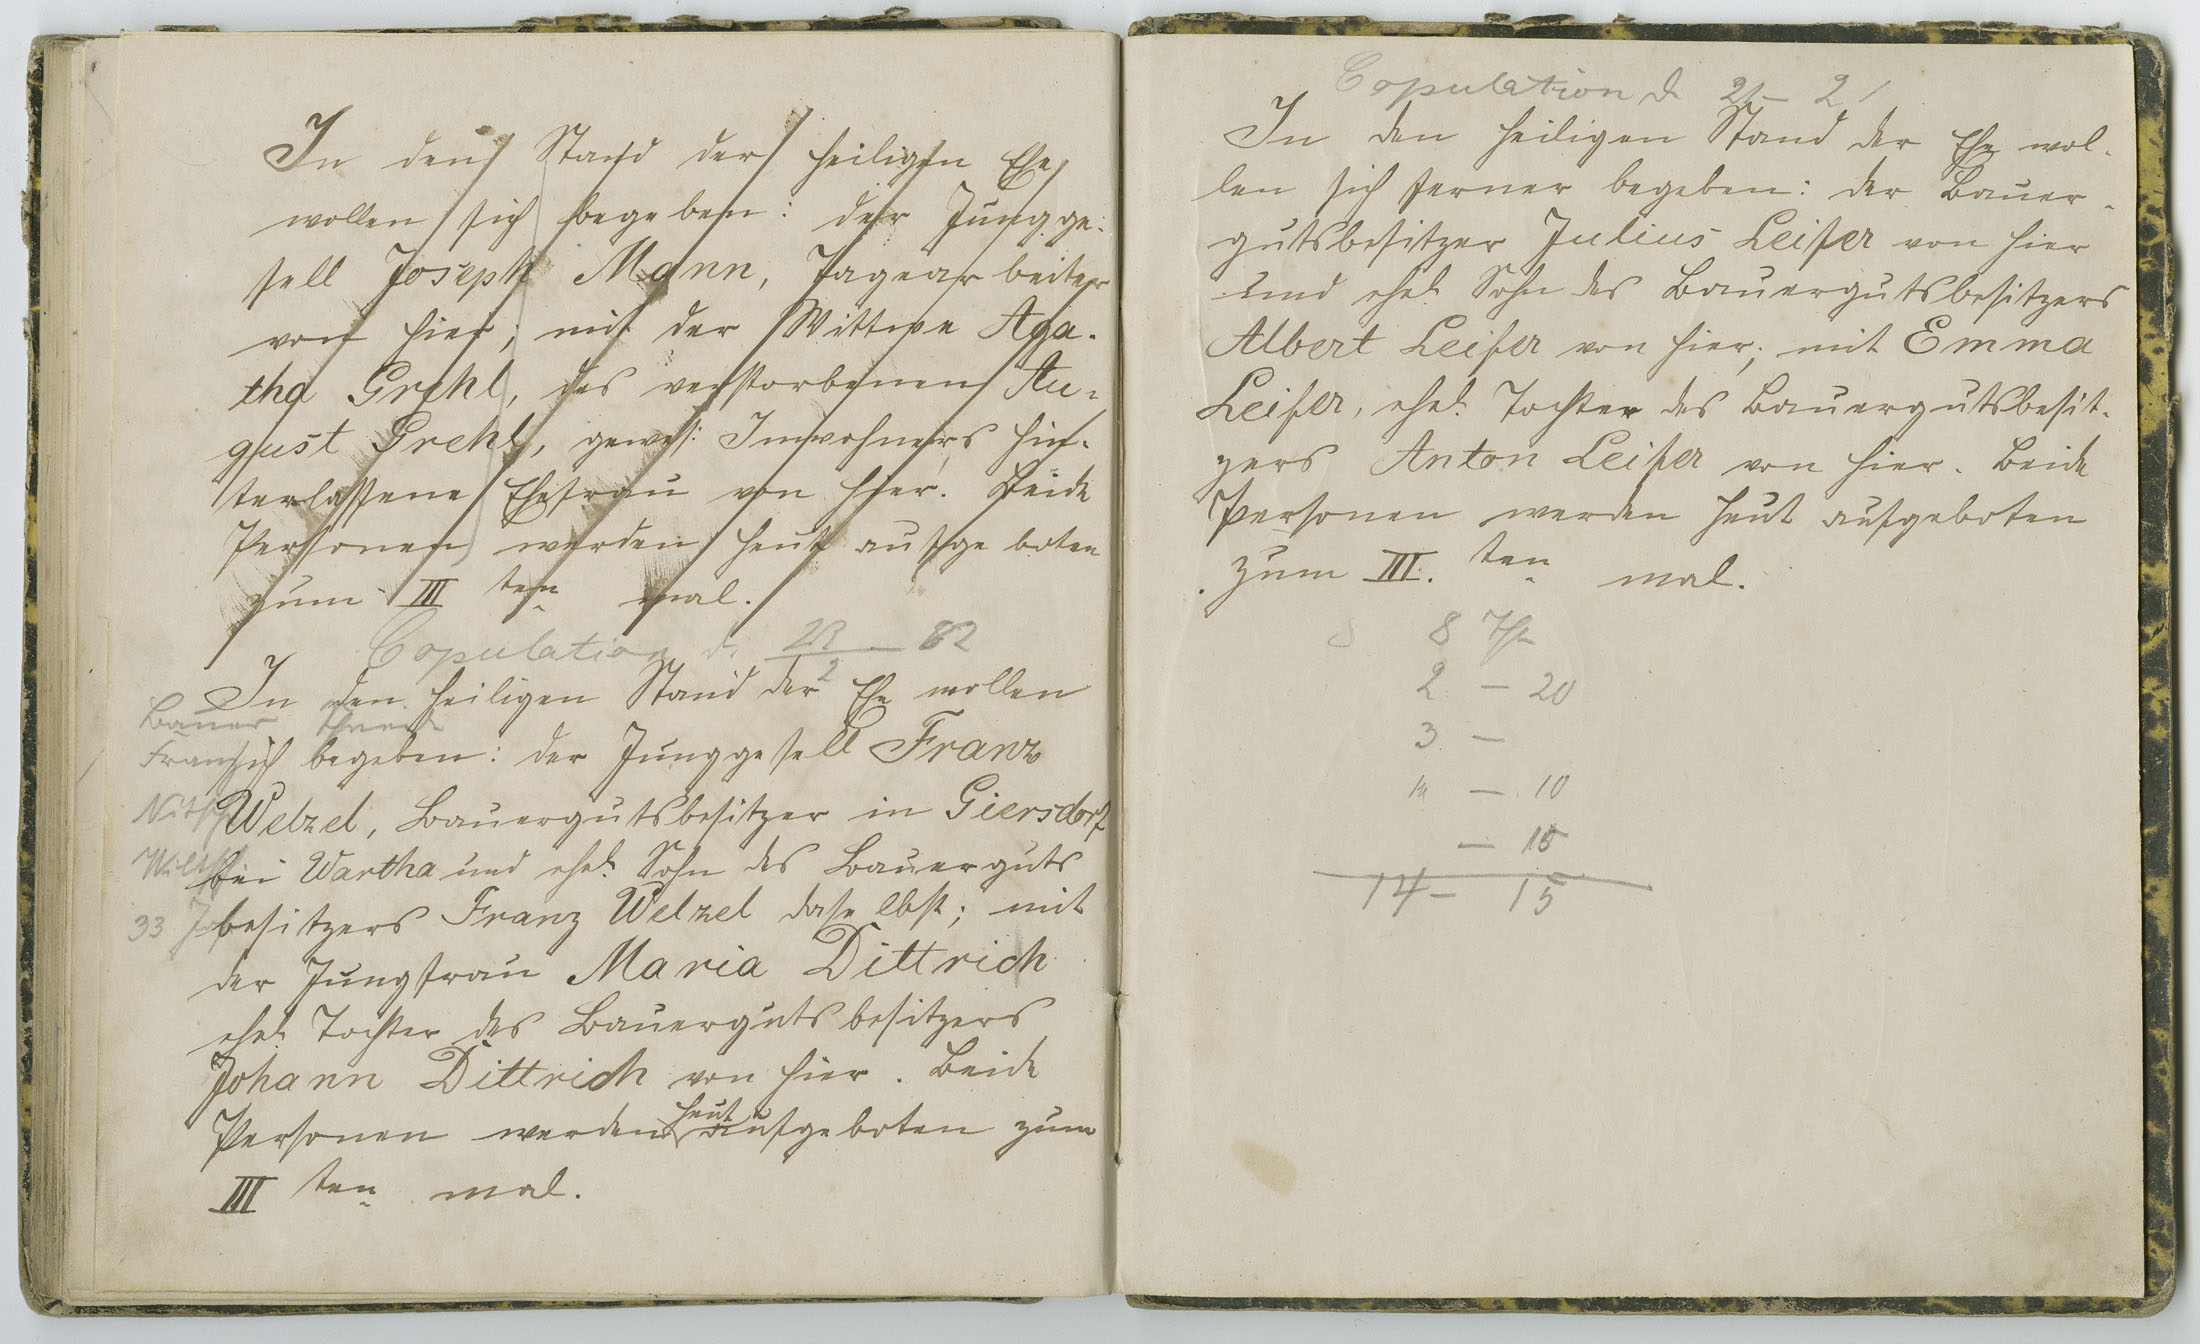 In den Stand der heiligen Ehe
wollen sich begeben: der Jungge-
sell Joseph Mann, Tagearbeiter
von hier; mit der Wittwe Aga-
tha Grehl, des verstorbenen Au-
gust Grehl, gewes: Inwohners hin-
terlassene Ehefrau von hier. Beide
Personen werden heut aufgeboten
zum III ten mal.
Copulation d. 21/2 82
In den heiligen Stand der Ehe wollen
Bauer
sich begeben: der Junggesell Franz
Franz
Welzel, Bauergutsbesitzer in Giersdorf
bei Wartha und ehel. Sohn des Bauerguts
besitzers Franz Welzel daselbst; mit
33
der Jungfrau Maria Dittrich
ehel. Tochter des Bauergutsbesitzers
Johann Dittrich von hier. Beide
Personen werden heut aufgeboten zum
III ten mal.
Copulation d. 21 – 2
In den heiligen Stand der Ehe wol-
len sich ferner begeben: der Bauer-
gutsbesitzer Julius Leifer von hier
und ehel. Sohn des Bauergutsbesitzers
Albert Leifer von hier; mit Emma
Leifer, ehel. Tochter des Bauergutsbesit-
zers Anton Leifer von hier. Beide
Personen werden heut aufgeboten
zum III. ten mal.
8
2 – 20
3 –
– 10
– 15
14 – 15